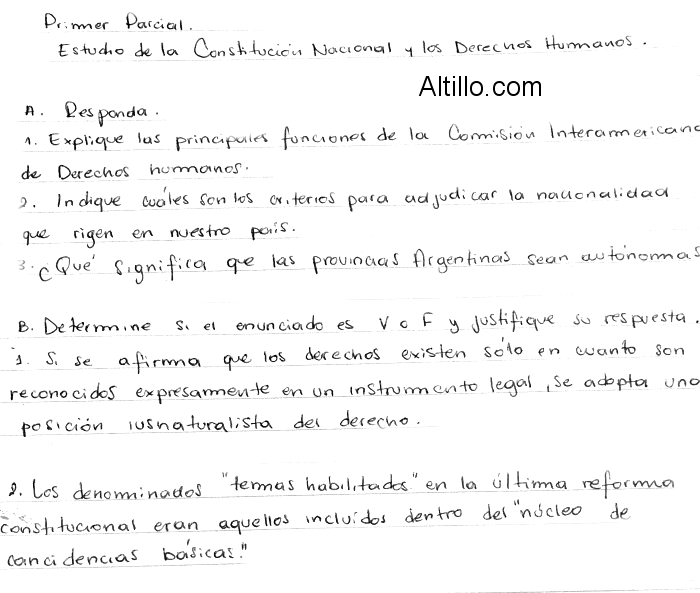 Primer Parcial.
Estudio de la Constitución Nacional y los Derechos Humanos.
Altillo.com
A. Responda.
1. Explique las principales funciones de la Comisión Interamericana
de Derechos humanos.
2. Indique cuáles son los criterios para adjudicar la nacionalidad
que rigen en nuestro país.
3. ¿Qué significa que las provincias Argentinas sean autónomas
B. Determine si el enunciado es V o F y justifique su respuesta.
1. Si se afirma que los derechos existen sólo en cuanto son
reconocidos expresamente en un instrumento legal, se adopta una
posición iusnaturalista del derecho.
2. Los denominados "temas habilitados" en la última reforma
constitucional eran aquellos incluídos dentro del "núcleo de
coincidencias básicas."